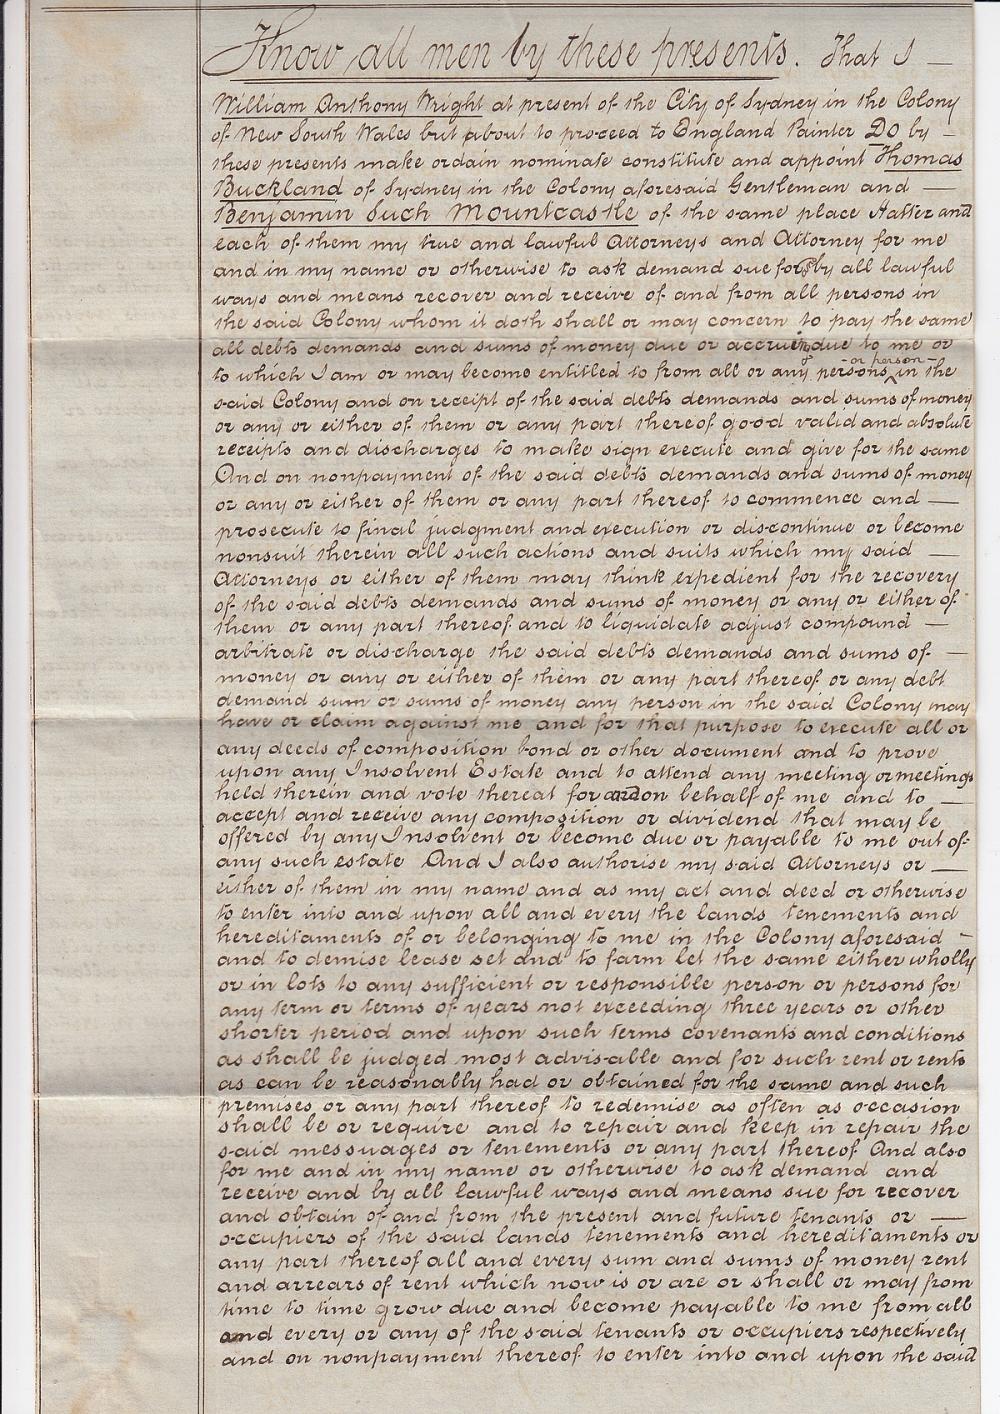 Know all men by these presents. That I —
William Anthony Wright at present of the City of Sydney in the Colony
of New South Wales but about to proceed to England Painter Do by —
these presents make ordain nominate constitute and appoint Thomas
Buckland of Sydney in the Colony aforesaid Gentleman and —
Benjamin Such Mountcastle of the same place Hatter and
each of them my true and lawful Attorneys and Attorney for me
and in my name or otherwise to ask demand sue for by all lawful
ways and means recover and receive of and from all persons in
the said Colony whom it doth shall or may concern to pay the same
all debts demands and sums of money due or accruing due to me or
to which I am or may become entitled to from all or any persons or person in the
said Colony and on receipt of the said debts demands and sums of money
or any or either of them or any part thereof good valid and absolute
receipts and discharges to make sign execute and give for the same
And on nonpayment of the said debts demands and sums of money
or any or either of them or any part thereof to commence and —
prosecute to final judgment and execution or discontinue or become
nonsuit therein all such actions and suits which my said —
Attorneys or either of them may think expedient for the recovery
of the said debts demands and sums of money or any or either of
them or any part thereof and to liquidate adjust compound —
arbitrate or discharge the said debts demands and sums of —
money or any or either of them or any part thereof or any debt
demand sum or sums of money any person in the said Colony may
have or claim against me and for that purpose to execute all or
any deeds of composition bond or other document and to prove
upon any Insolvent Estate and to attend any meeting or meetings
held therein and vote thereat for and on behalf of me and to —
accept and receive any composition or dividend that may be
offered by any Insolvent or become due or payable to me out of
any such estate And I also authorise my said Attorneys or —
either of them in my name and as my act and deed or otherwise
to enter into and upon all and every the lands tenements and
hereditaments of or belonging to me in the Colony aforesaid —
and to demise lease set and to farm let the same either wholly
or in lots to any sufficient or responsible person or persons for
any term or terms of years not exceeding three years or other
shorter period and upon such terms covenants and conditions
as shall be judged most advisable and for such rent or rents
as can be reasonably had or obtained for the same and such
premises or any part thereof to redemise as often as occasion
shall be or require and to repair and keep in repair the
said messuages or tenements or any part thereof And also
for me and in my name or otherwise to ask demand and
receive and by all lawful ways and means sue for recover
and obtain of and from the present and future tenants or —
occupiers of the said lands tenements and hereditaments or
any part thereof all and every sum and sums of money rent
and arrears of rent which now is or are or shall or may from
time to time grow due and become payable to me from all
and every or any of the said tenants or occupiers respectively
and on nonpayment thereof to enter into and upon the said